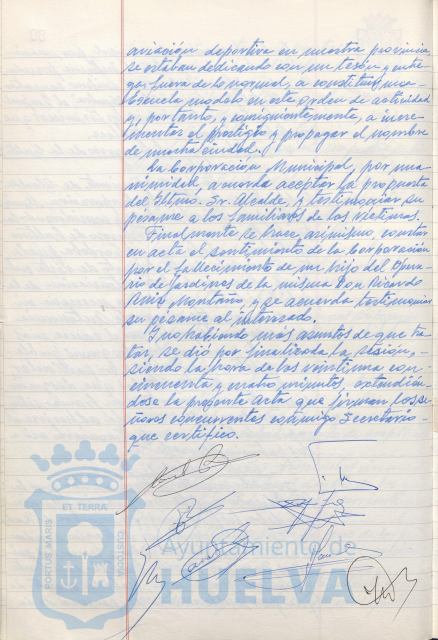 aviación deportiva en nuestra provincia
se estaban dedicando con un tesón y entre
ga fuera de lo normal, a constituir una
Escuela modelo en este orden de actividad
y, por tanto, y consiguientemente, a incre
mentar el prestigio y propagar el nombre
de nuestra ciudad.
La Corporación Municipal, por una
nimidad, acuerda aceptar la propuesta
del Iltmo. Sr. Alcalde, y testimoniar su
pésame a los familiares de las víctimas.
Finalmente se hace, asimismo, constar
en acta el sentimiento de la Corporación
por el fallecimiento de un hijo del Opera
rio de Jardines de la misma Don Ricardo
Ruiz Montaño, y se acuerda testimoniar
su pésame al interesado.
Y no habiendo más asuntos de que tra
tar, se dió por finalizada la sesión,
siendo la hora de las veintiuna con
cincuenta y cuatro minutos, extendién
dose la presente acta que firman los se
ñores concurrentes conmigo Secretario
que certifico.
ET TERRA
PORTUS MARIS
CUSTODIT
Ayuntamiento de
HUELVA